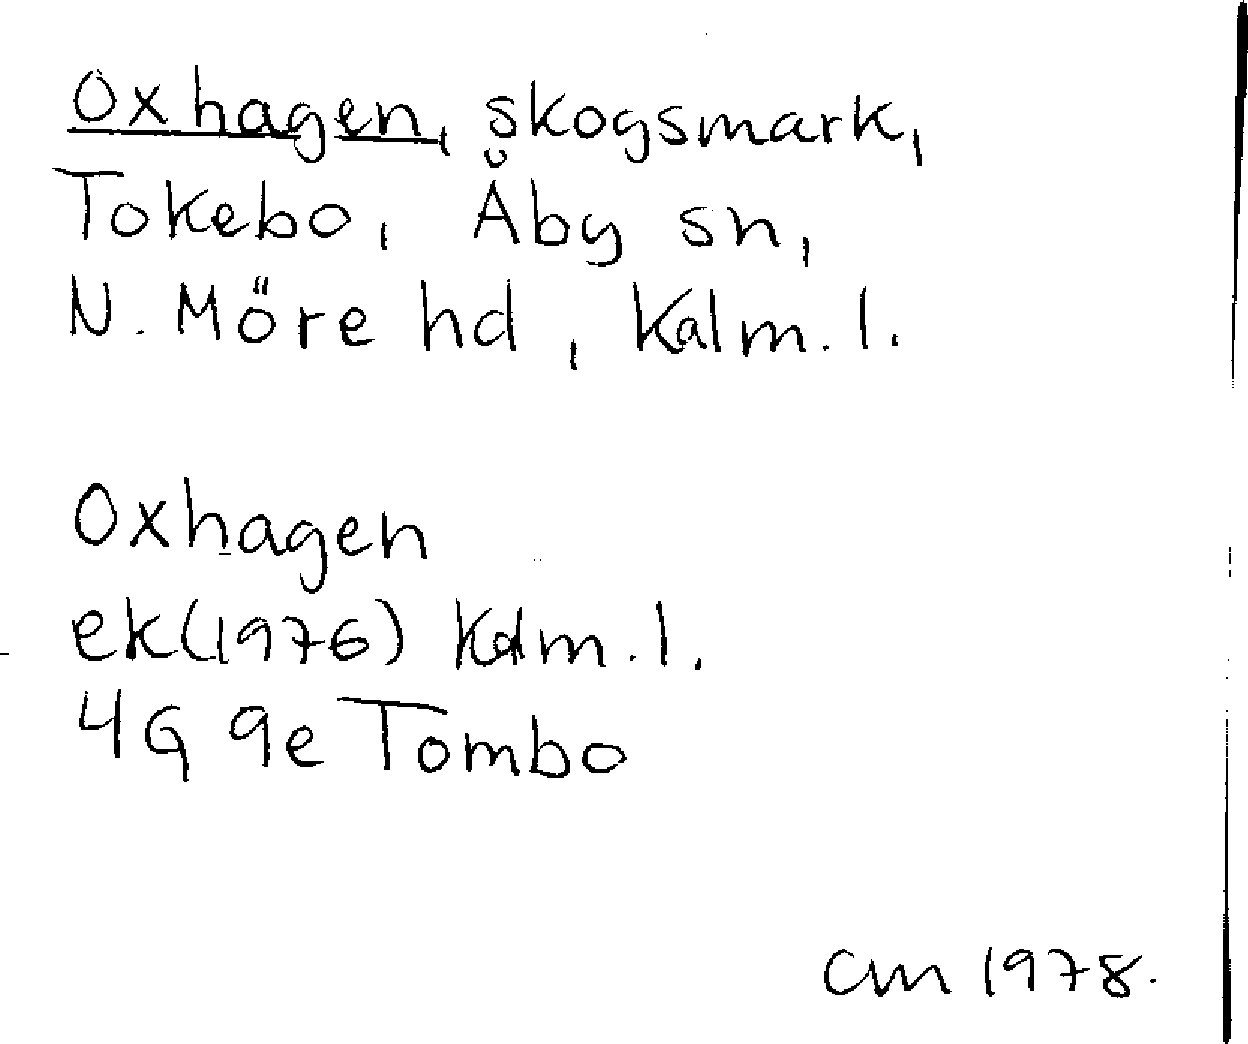 Oxhagen, skogsmark,
Tokebo, Åby sn,
N. Möre hd, Kalm. l.
Oxhagen
ek(1976) Kalm. l.
4G 9e Tombo
CM 1978.